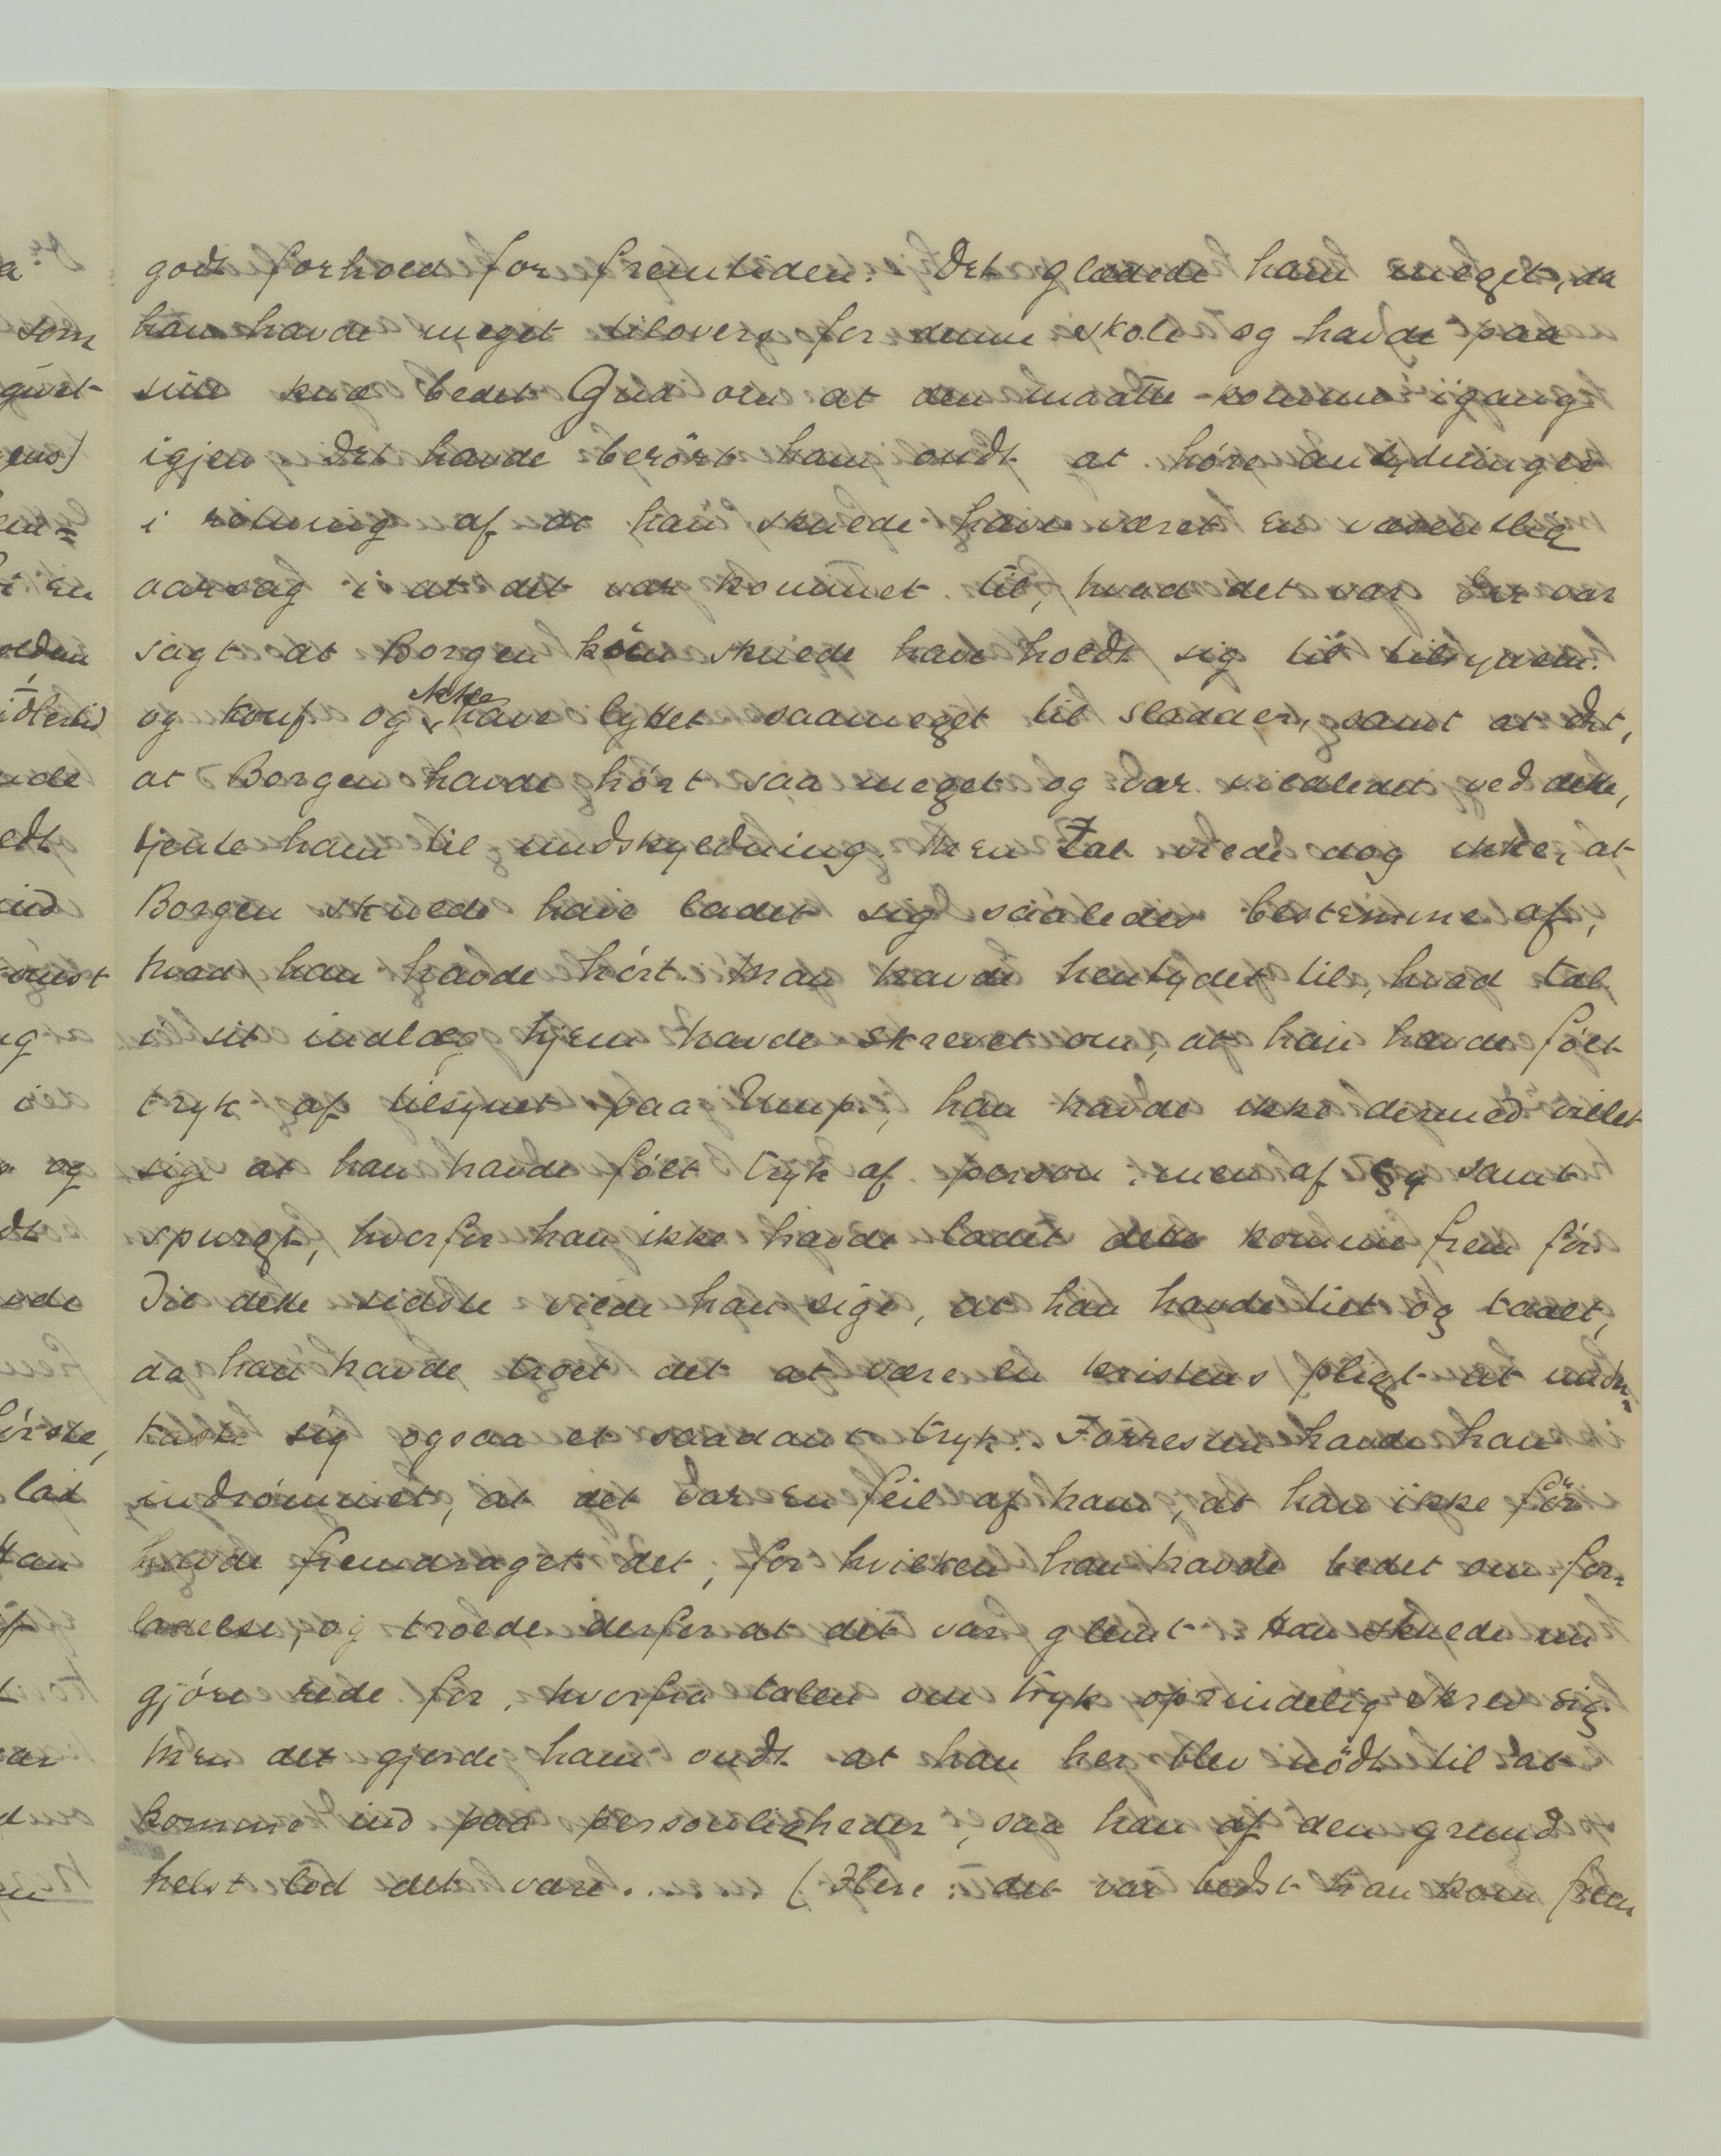 godt forhold for fremtiden. - Det glædede ham meget, da
han havde meget tilovers for denne skole og havde paa
sine knæ bedet Gud om at den maatte komme igang
igjen. Det havde berört ham ondt at höre antydninger
i retning af at han skulde have været en væsentlig
aarsag i at det var kommet til, hvad det var. Der var
sagt at Borgen kun skulde have holdt sig til tilsynem.
og konf. og ikke have lyttet saameget til sladder, samt at det,
at Borgen havde hört saa meget og var vildledet ved dette,
tjente ham til undskyldning. Men Tal. vilde dog ikke, at
Borgen skulde have ladet sig saaledes bestemme af,
hvad han havde hört. Man havde hentydet til, hvad Tal.
i sit indlæg hjem havde skrevet om, at han havde fölt
tryk af tilsynet paa Ump., han havde ikke dermed villet
sige at han havde fölt tryk af person men af § samt
spurgt, hvorfor han ikke havde ladet dette komme frem för.
Til dette sidste vilde han sige, at han havde tiet og taalt,
da han havde troet det at være en kristens pligt at under=
kaste sig ogsaa et saadant tryk. Forresten havde han
indrömmet, at det var en feil af ham, at han ikke för
havde fremdraget det, for hvilken han havde bedet om for=
ladelse, og troede derfor at det var glemt. Han skulde nu
gjöre rede for, hvorfra talen om tryk oprindelig skrev sig.
Men det gjorde ham ondt at han her blev nödt til at
komme ind paa personligheder, saa han af den grund
helst lod det være..... (Flere: det var bedst han kom frem
a
som
givet
ens)
en=
i en
idlertid
nde
edt
ind
omst
ng
i
og
dt
vde
förste,
lad
Han
af
t
ar
d
en